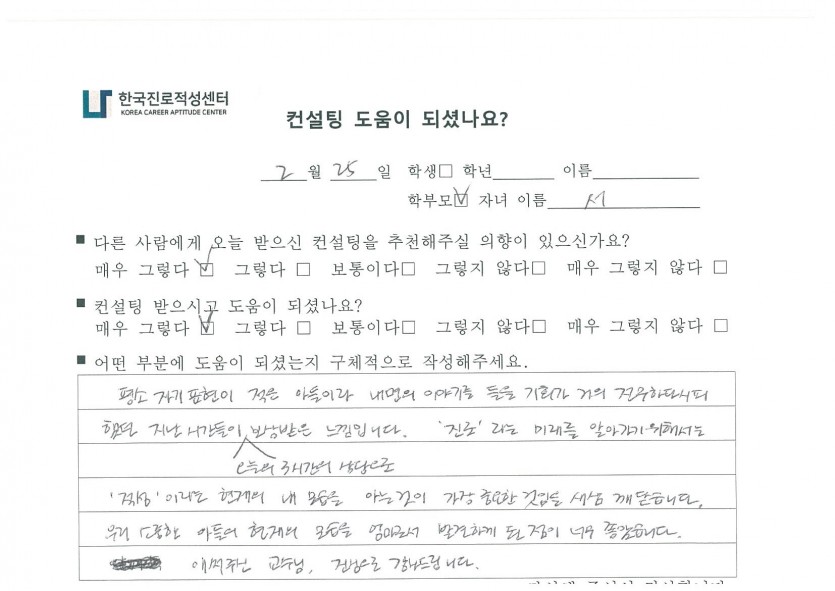 한국진로적성센터
KOREA CAREER APTITUDE CENTER
컨설팅 도움이 되셨나요?
2 월 25 일 학생□ 학년 이름
학부모☑ 자녀 이름 서
■ 다른 사람에게 오늘 받으신 컨설팅을 추천해주실 의향이 있으신가요?
매우 그렇다 ☑ 그렇다 □ 보통이다□ 그렇지 않다□ 매우 그렇지 않다 □
■ 컨설팅 받으시고 도움이 되셨나요?
매우 그렇다 ☑ 그렇다 □ 보통이다□ 그렇지 않다□ 매우 그렇지 않다 □
■ 어떤 부분에 도움이 되셨는지 구체적으로 작성해주세요.
평소 자기 표현이 적은 아들이라 내면의 이야기를 들을 기회가 거의 전무하다시피
했던 지난 시간들이 보상받은 느낌입니다. '진로' 라는 미래를 알아가기 위해서는
오늘의 3시간의 상담으로
'적성' 이라는 현재의 내 모습을 아는것이 가장 중요한 것임을 새삼 깨닫습니다.
우리 소중한 아들의 현재의 모습을 엄마로서 발견하게 된 점이 너무 뜻깊습니다.
애써주신 교수님, 진심으로 감사드립니다.